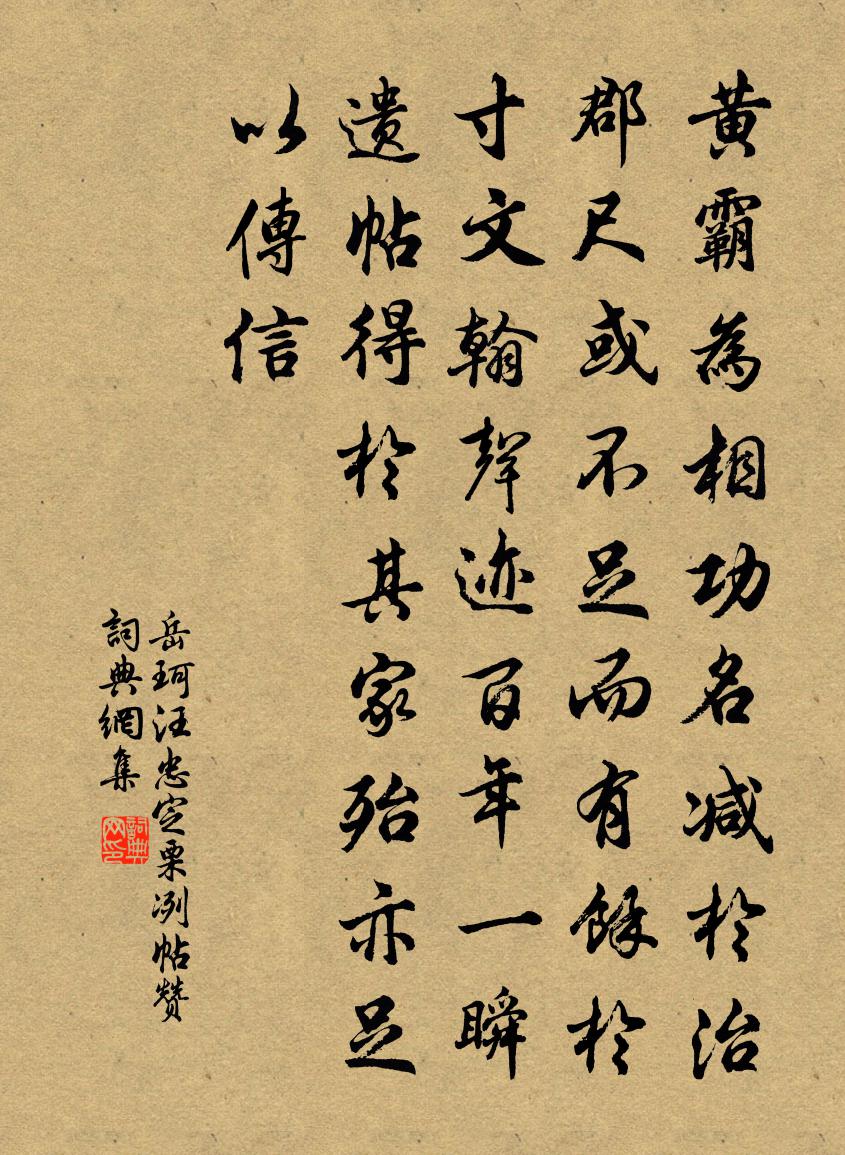 黃霸為相功名减於治
郡尺或不足而有餘於
寸文翰聲迹百年一瞬
遺帖得於其家殆亦足
以傳信
岳珂汪忠定栗冽帖赞
詞典網集
詞典网印